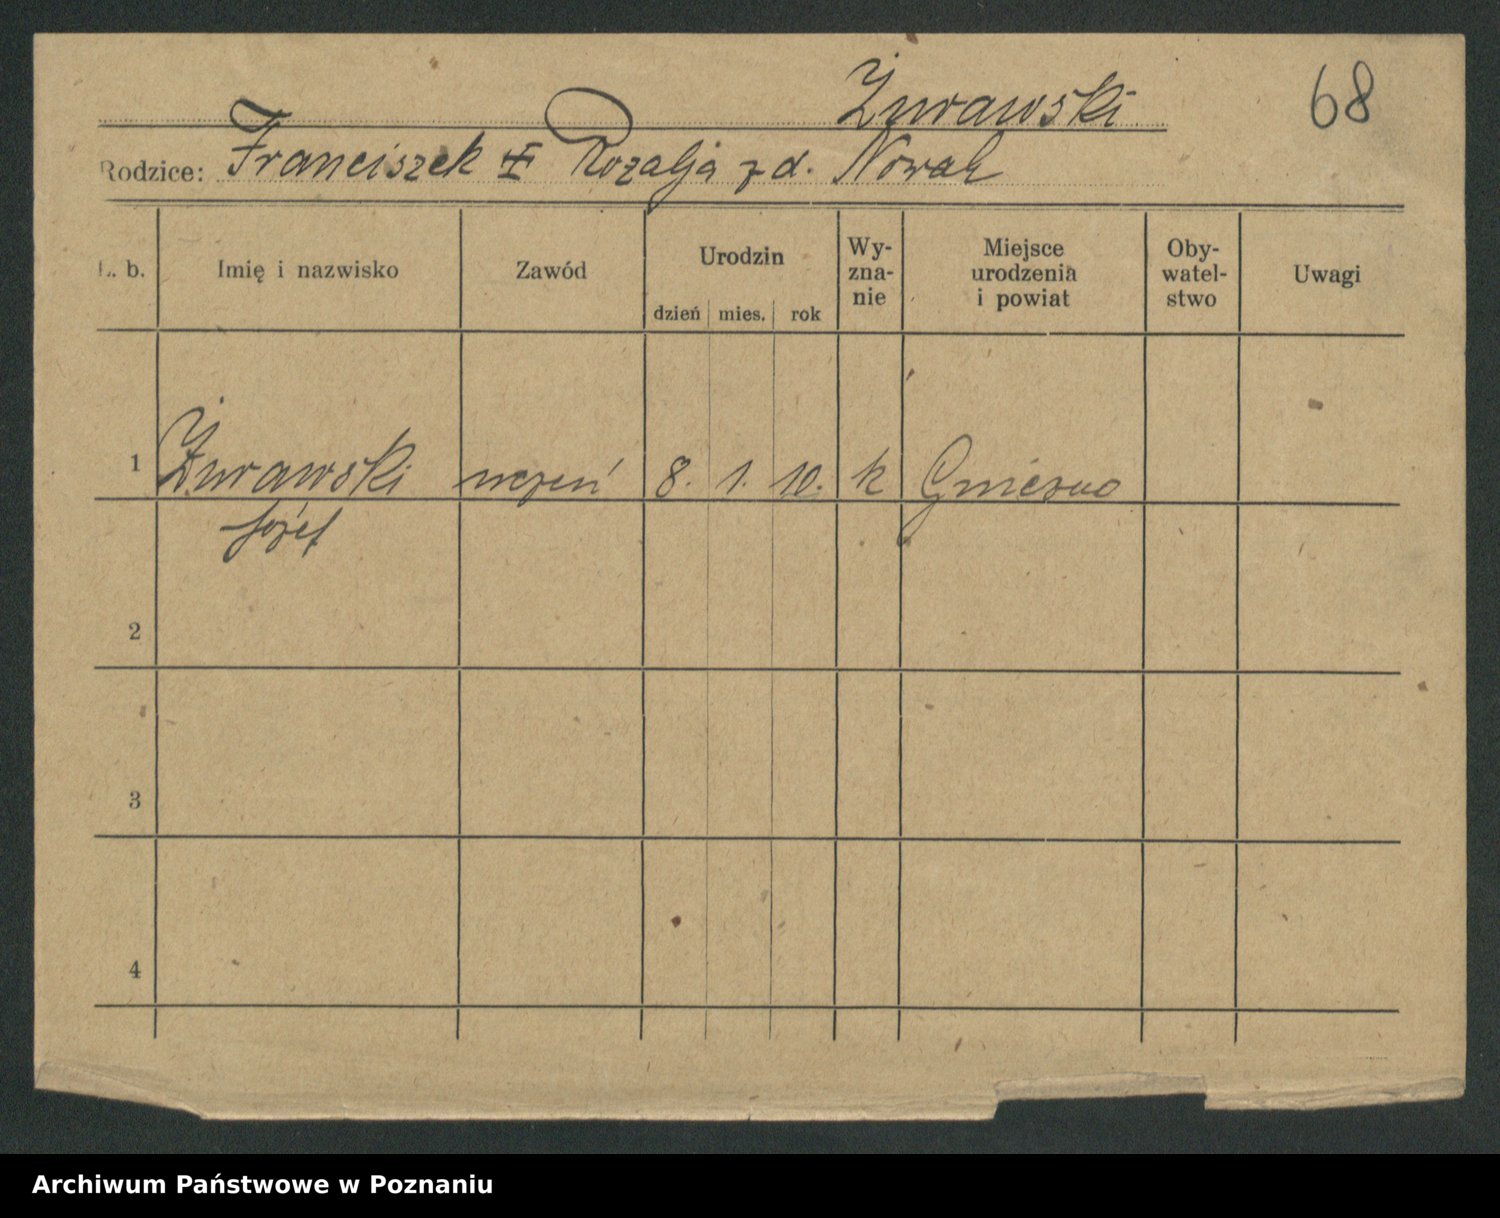 Żurawski 68
Rodzice: Franciszek Rozalja z d. Nowak
L. b. Imię i nazwisko Zawód Urodzin dzień mies. rok Wy-zna-nie Miejsce urodzenia i powiat Oby-watel-stwo Uwagi
1 Żurawski uczeń 8. 1. 10. k Gniezno
Józef
2
3
4
Archiwum Państwowe w Poznaniu